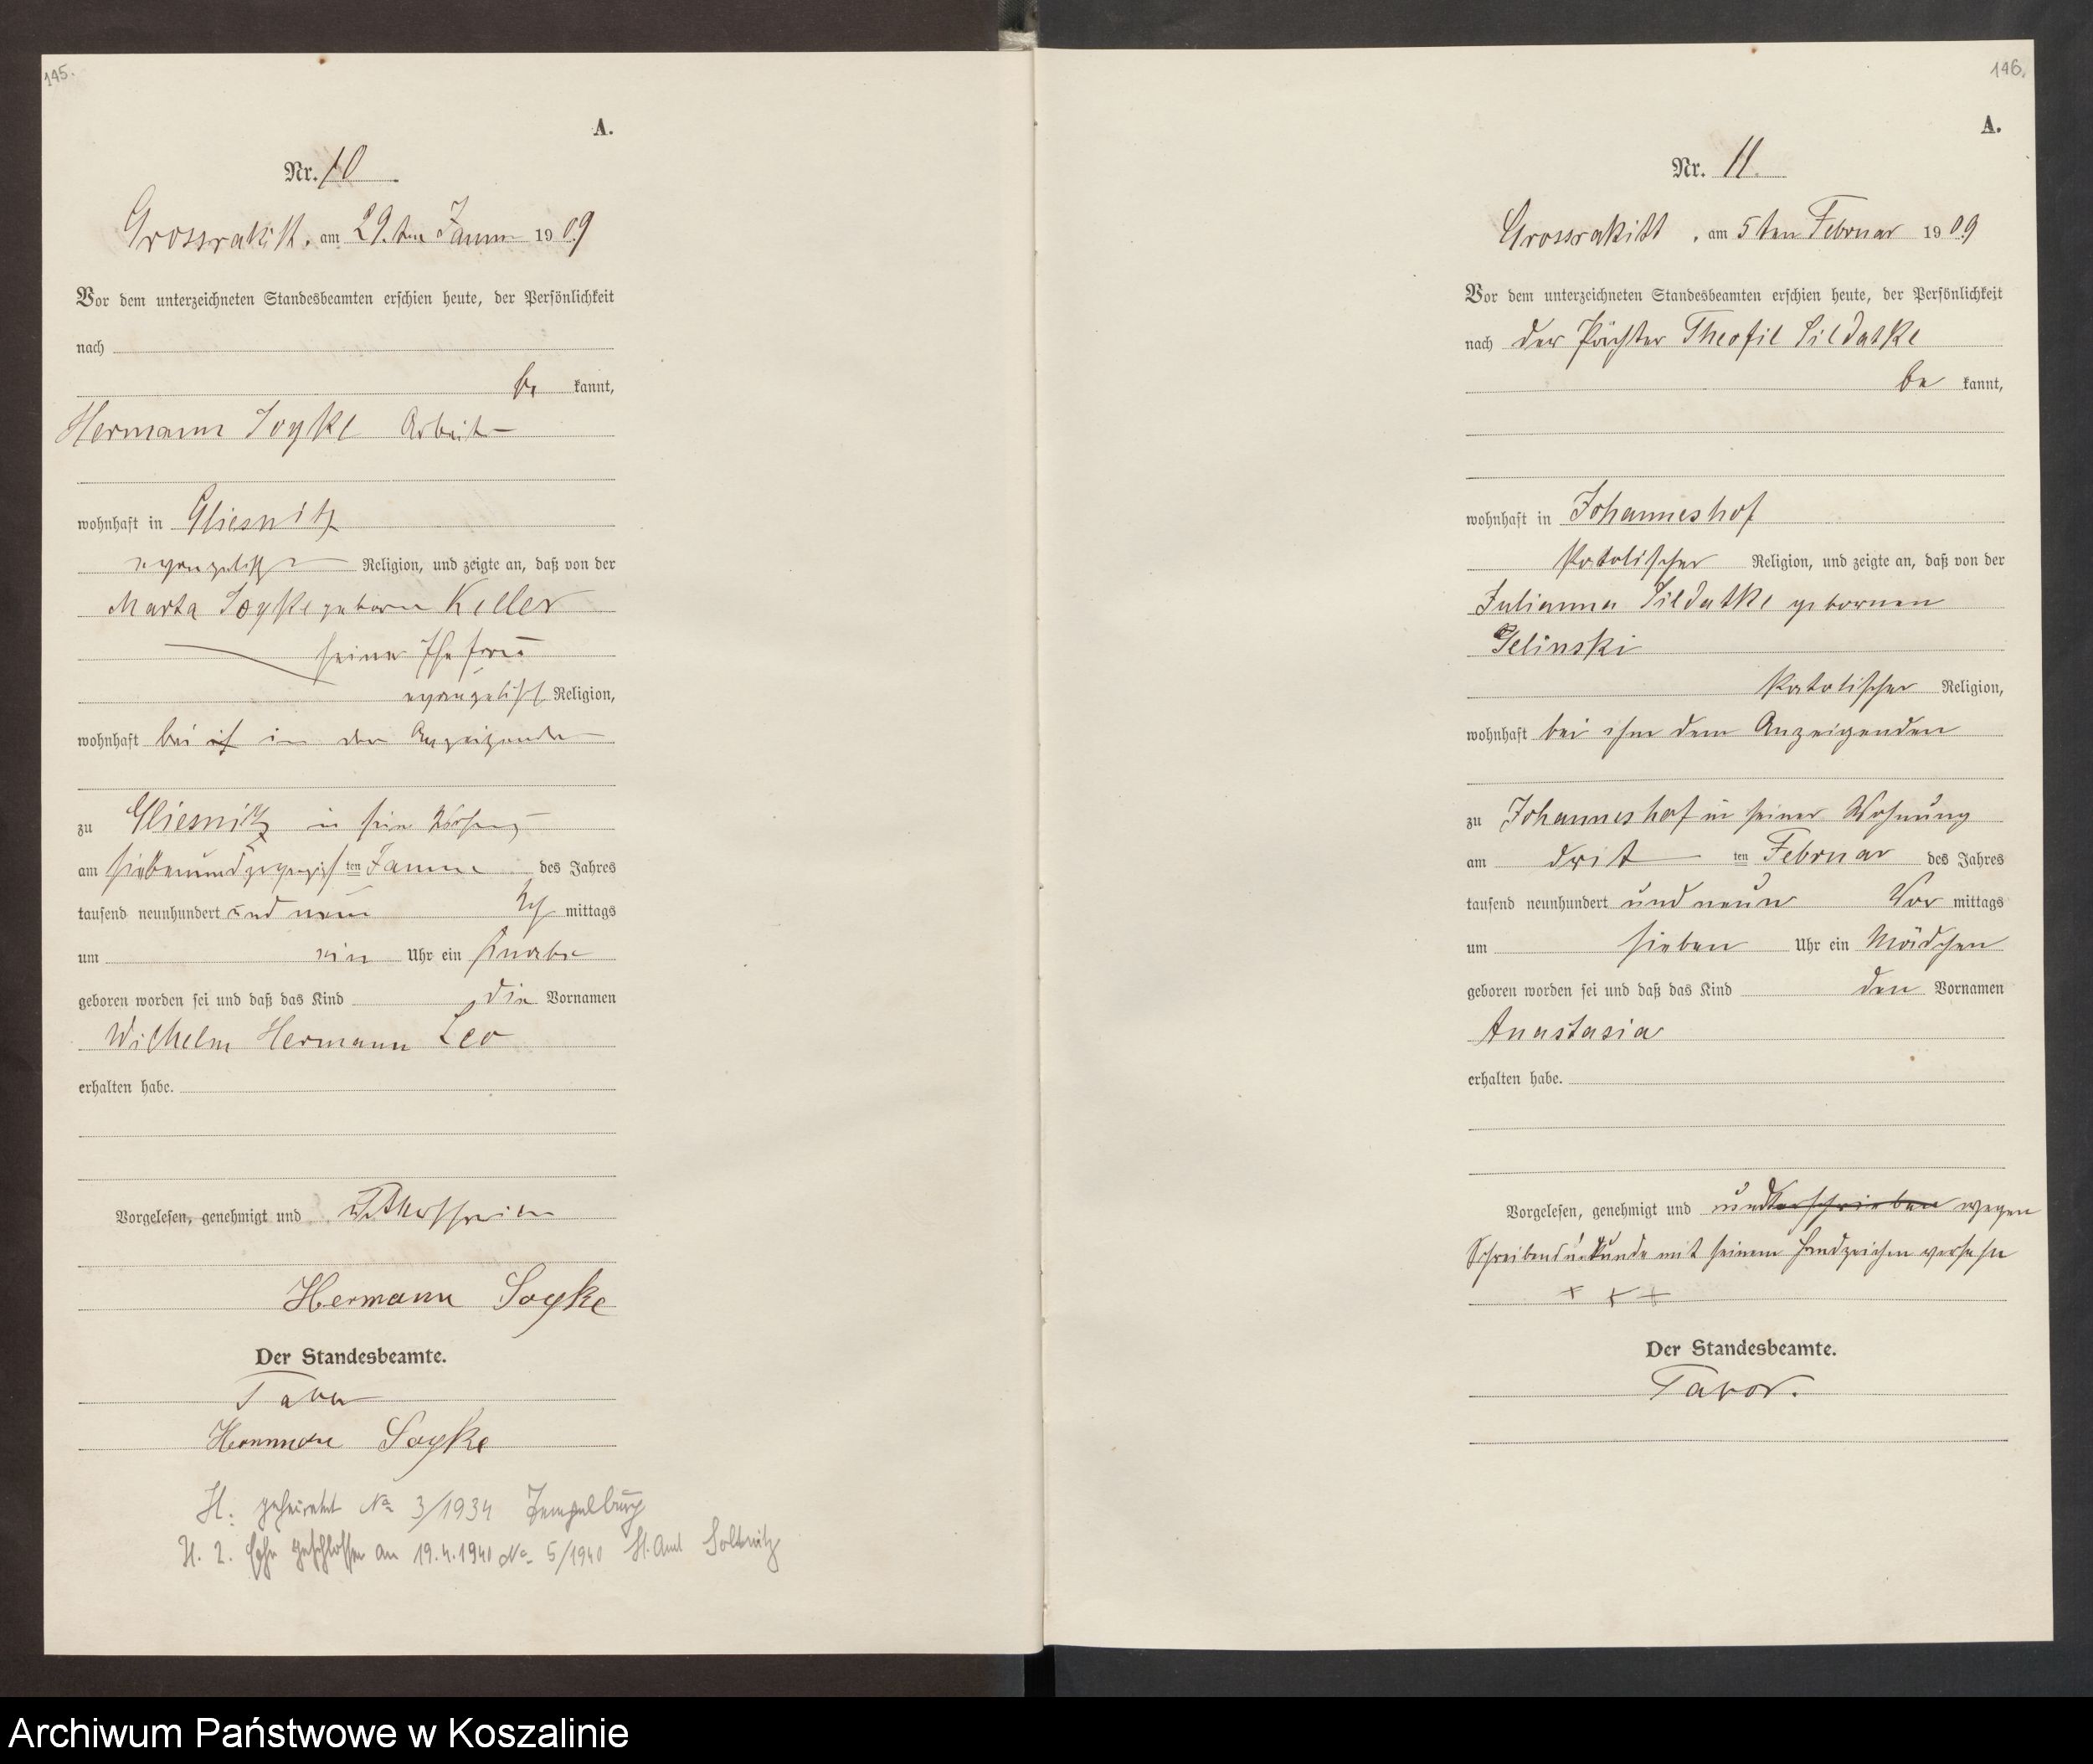 145.
A.
Nr. 10
Grossrakitt, am 29. ten Januar 1909
Vor dem unterzeichneten Standesbeamten erschien heute, der Persönlichkeit
nach
be kannt,
Hermann Soyke Arbeit
wohnhaft in Gliesnitz
evangelisch Religion, und zeigte an, daß von der
Marta Soyke geborne Keller
seiner Ehefrau
evangelisch Religion,
wohnhaft bei
zu Gliesnitz in sein Wohnung
am siebenundzwanzigsten Januar des Jahres
tausend neunhundert und neun Nch mittags
um ein Uhr ein Knabe
geboren worden sei und daß das Kind die Vornamen
Wilhelm Hermann Leo
erhalten habe.
Vorgelesen, genehmigt und
Hermann Soyke
Der Standesbeamte.
Tavor
Hermann Soyke
H. geheiratet No 3/1934 Tempelburg
H. 2. Ehe geschlossen am 19.4.1940 No 5/1940 St. Amt
146.
A.
Nr. 11.
Grossrakitt, am 5ten Februar 1909
Vor dem unterzeichneten Standesbeamten erschien heute, der Persönlichkeit
nach der Pächter Theofil Sildatke
be kannt,
wohnhaft in Johanneshof
katolischer Religion, und zeigte an, daß von der
Julianna Sildatke gebornen
Selinski
katolischer Religion,
wohnhaft bei ihm dem Anzeigenden
zu Johanneshof in seiner Wohnung
am drit ten Februar des Jahres
tausend neunhundert und neun Vor mittags
um sieben Uhr ein Mädchen
geboren worden sei und daß das Kind den Vornamen
Anastasia
erhalten habe.
Vorgelesen, genehmigt und unterschrieben wegen
Schreibensunkunde mit seinem Handzeichen versehn
+ + +
Der Standesbeamte.
Tavor.
Archiwum Państwowe w Koszalinie